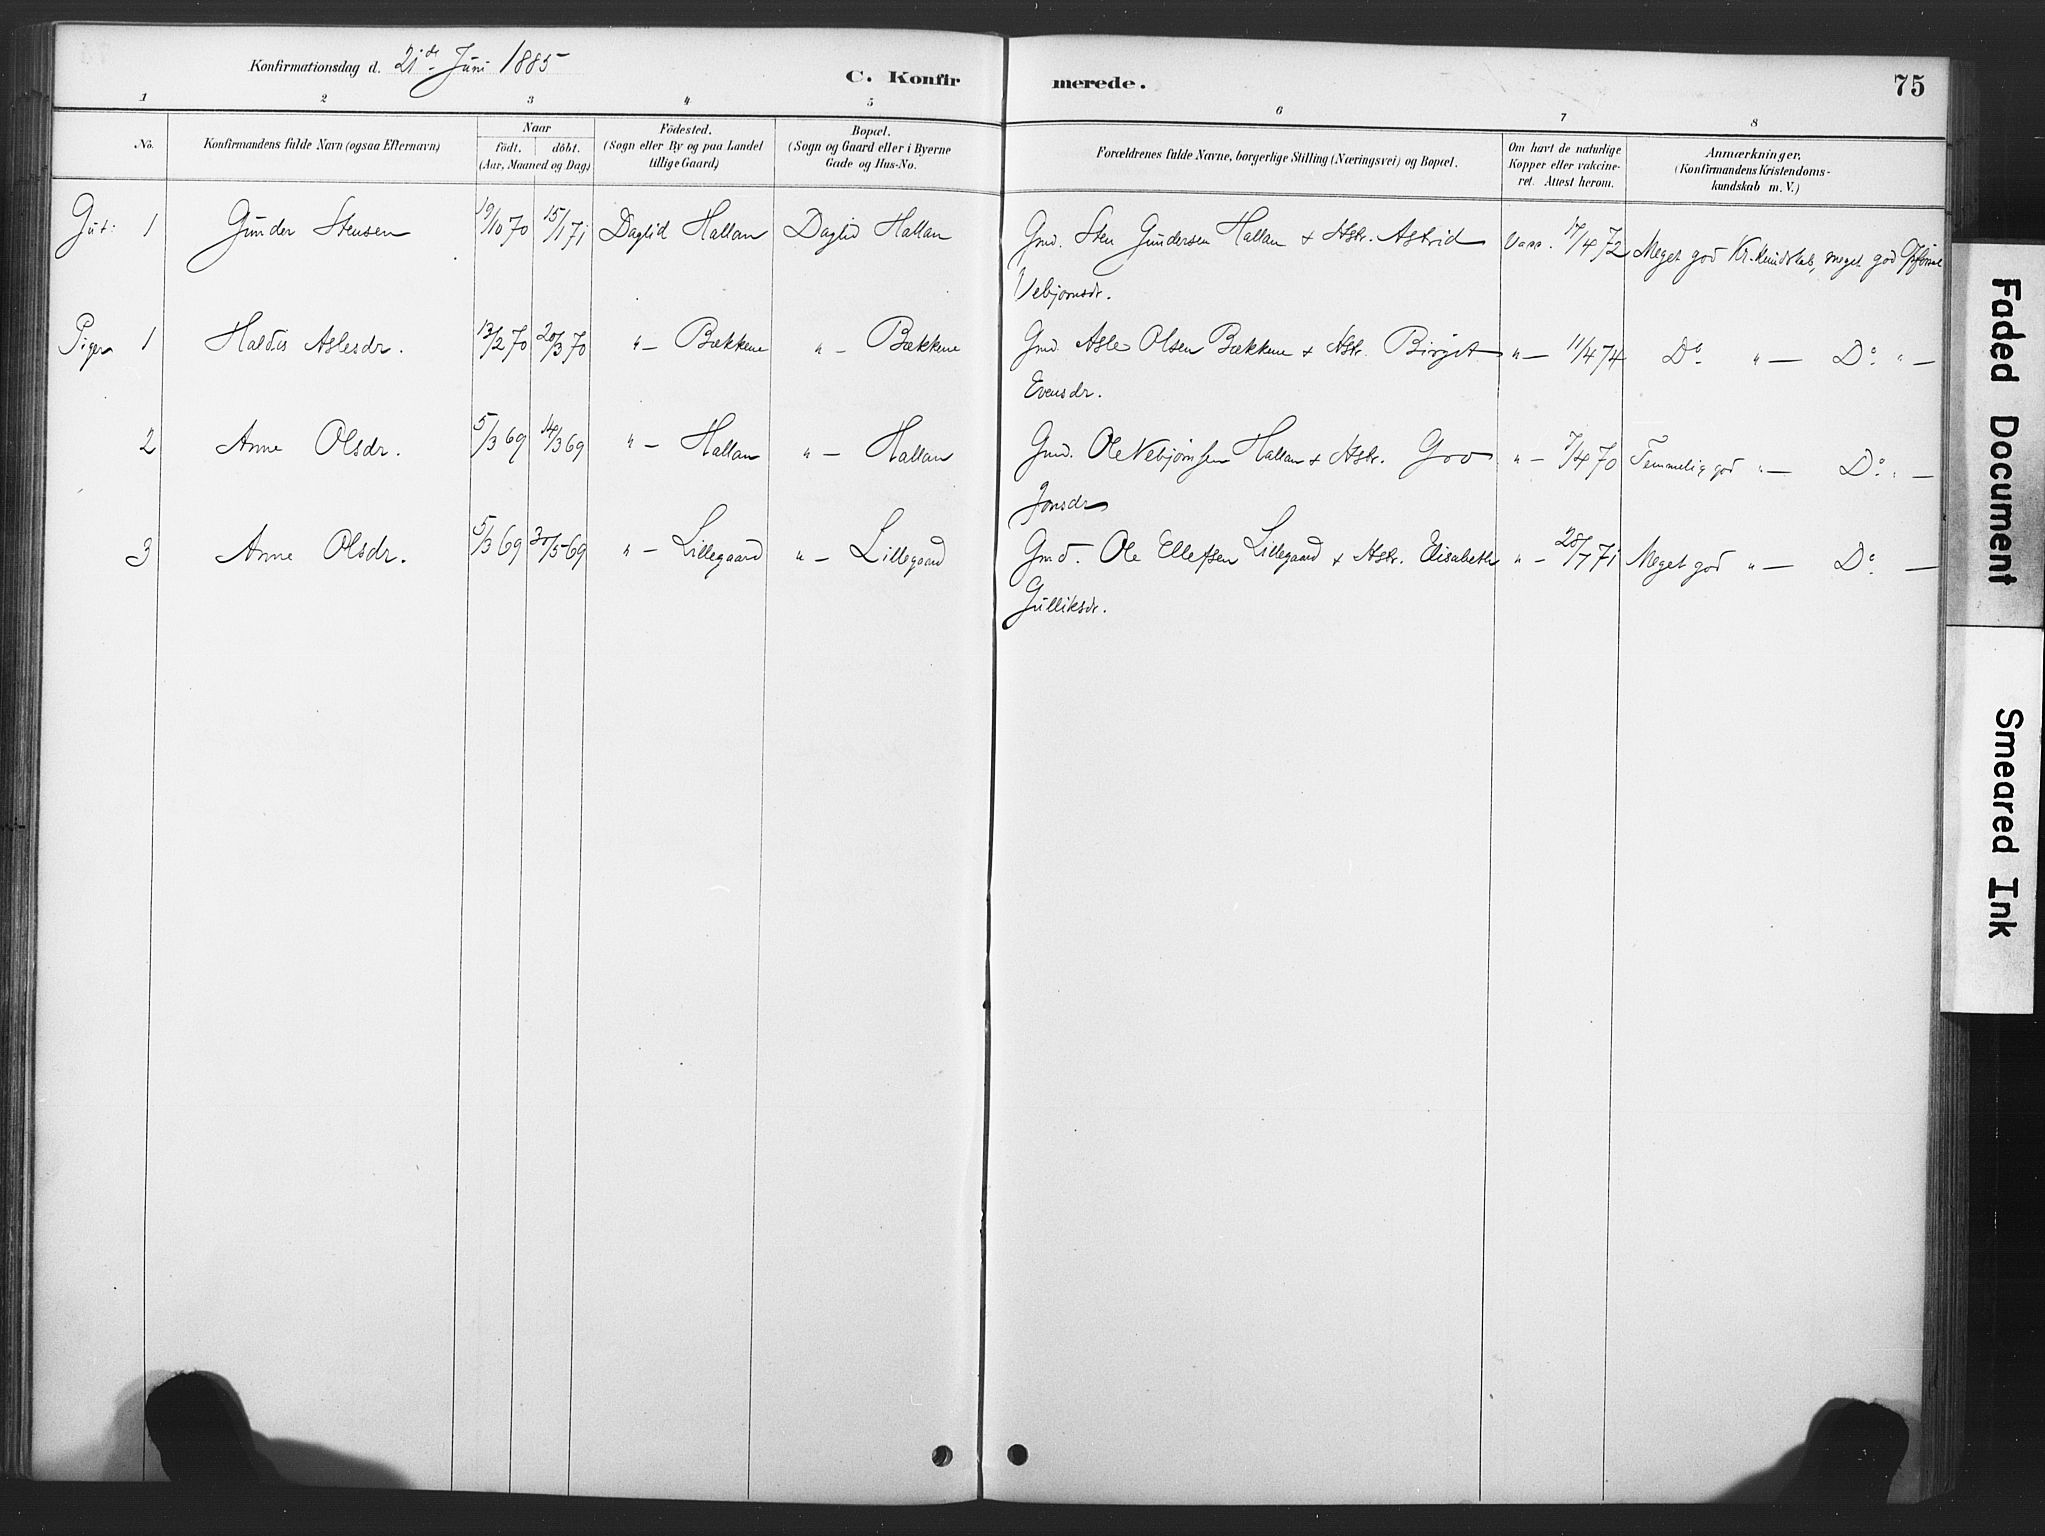 Konfirmationsdag d. 21de Juni 1885
C. Konfirmerede.
75
1 2 3 4 5 6 7 8
No.
Konfirmandens fulde Navn (ogsaa Efternavn)
Naar
födt. döbt.
(Aar, Maaned og Dag)
Födested.
(Sogn eller By og paa Landet
tillige Gaard)
Bopæl.
(Sogn og Gaard eller i Byerne
Gade og Hus-No.
Forældrenes fulde Navne, borgerlige Stilling (Næringsvei) og Bopæl.
Om havt de naturlige
Kopper eller vakcine-
ret. Attest herom.
Anmærkninger.
(Konfirmandens Kristendoms-
kundskab m. V.)
Gut: 1 Gunder Stensen 19/10 70 15/1 71 Daglid Hallan Daglid Hallan Gmd. Sten Gundersen Hallan + Hstr. Astrid Vacc. 17/4 72 Meget god Kr. kundskab, meget god
Vebjørnsdr.
Piger 1 Haldis Aslesdr. 13/2 70 20/3 70 " — Bækkene " — Bækkene Gmd. Asle Olsen Bækkene + Hstr. Birgit " — 11/4 74 Do. " — Do. " —
Evensdr.
2 Anne Olsdr. 5/3 69 14/3 69 " — Hallan " — Hallan Gmd. Ole Vebjørnsen Hallan + Hstr. Gro " — 7/4 70 Temmelig god " — Do. " —
Jonsdr
3 Anne Olsdr. 5/3 69 30/5 69 " — Lillegaard " — Lillegaard Gmd. Ole Ellefsen Lillegaard + Hstr. Elisabeth " — 28/7 71 Meget god " — Do. —
Gulliksdr.
Faded Document
Smeared Ink